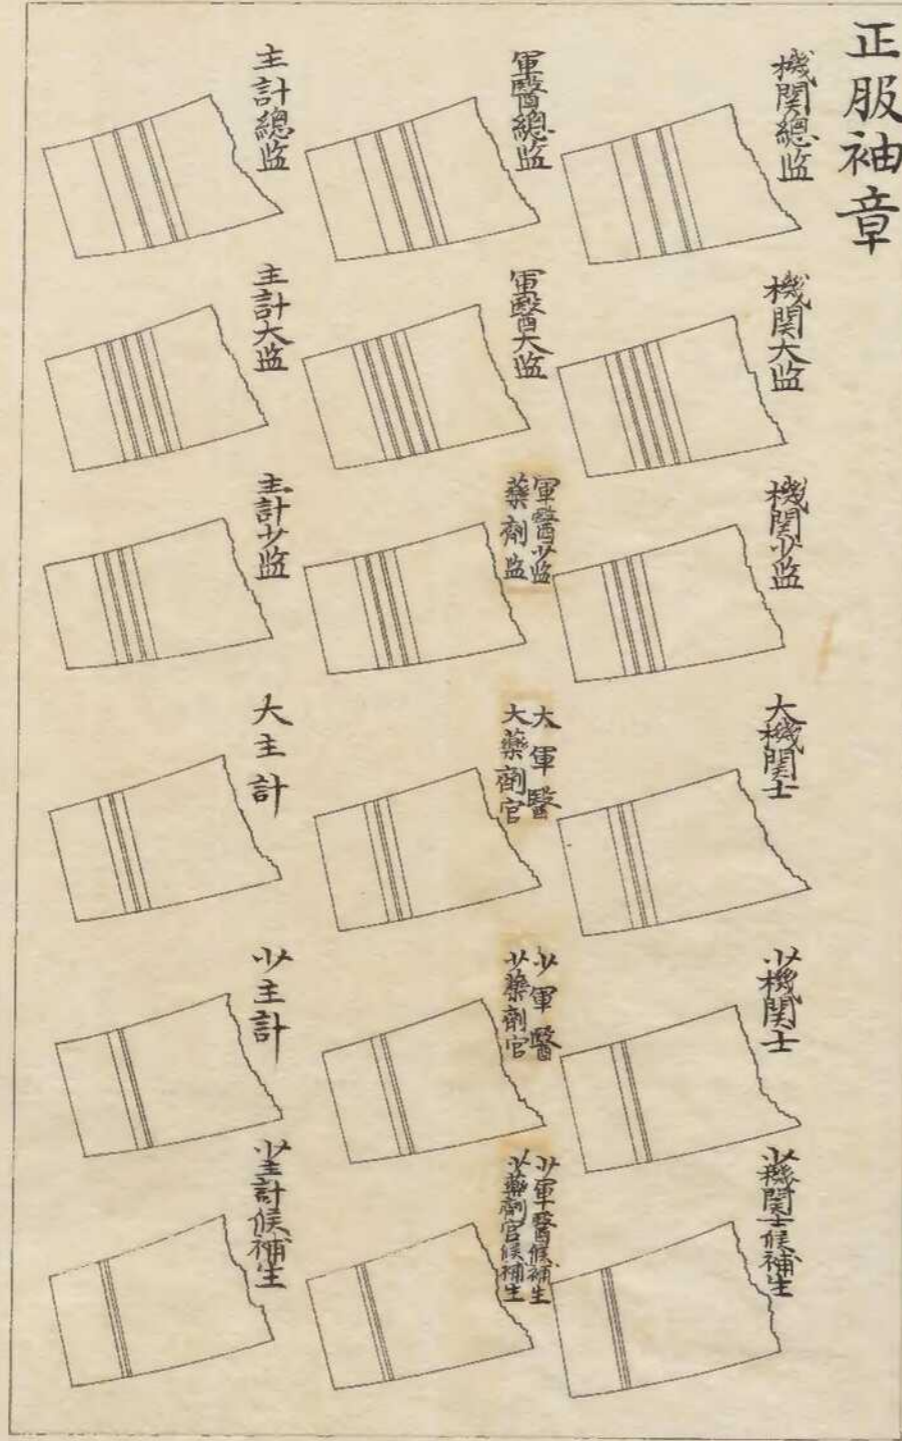 正服袖章
機関總监
機関大监
機関少监
大機関士
少機関士
少機関士候補生
軍醫總监
軍醫大监
軍醫少监
藥劑监
大軍醫
大藥劑官
少軍醫
少藥劑官
少軍醫候補生
少藥劑官候補生
主計總监
主計大监
主計少监
大主計
少主計
少主計候補生